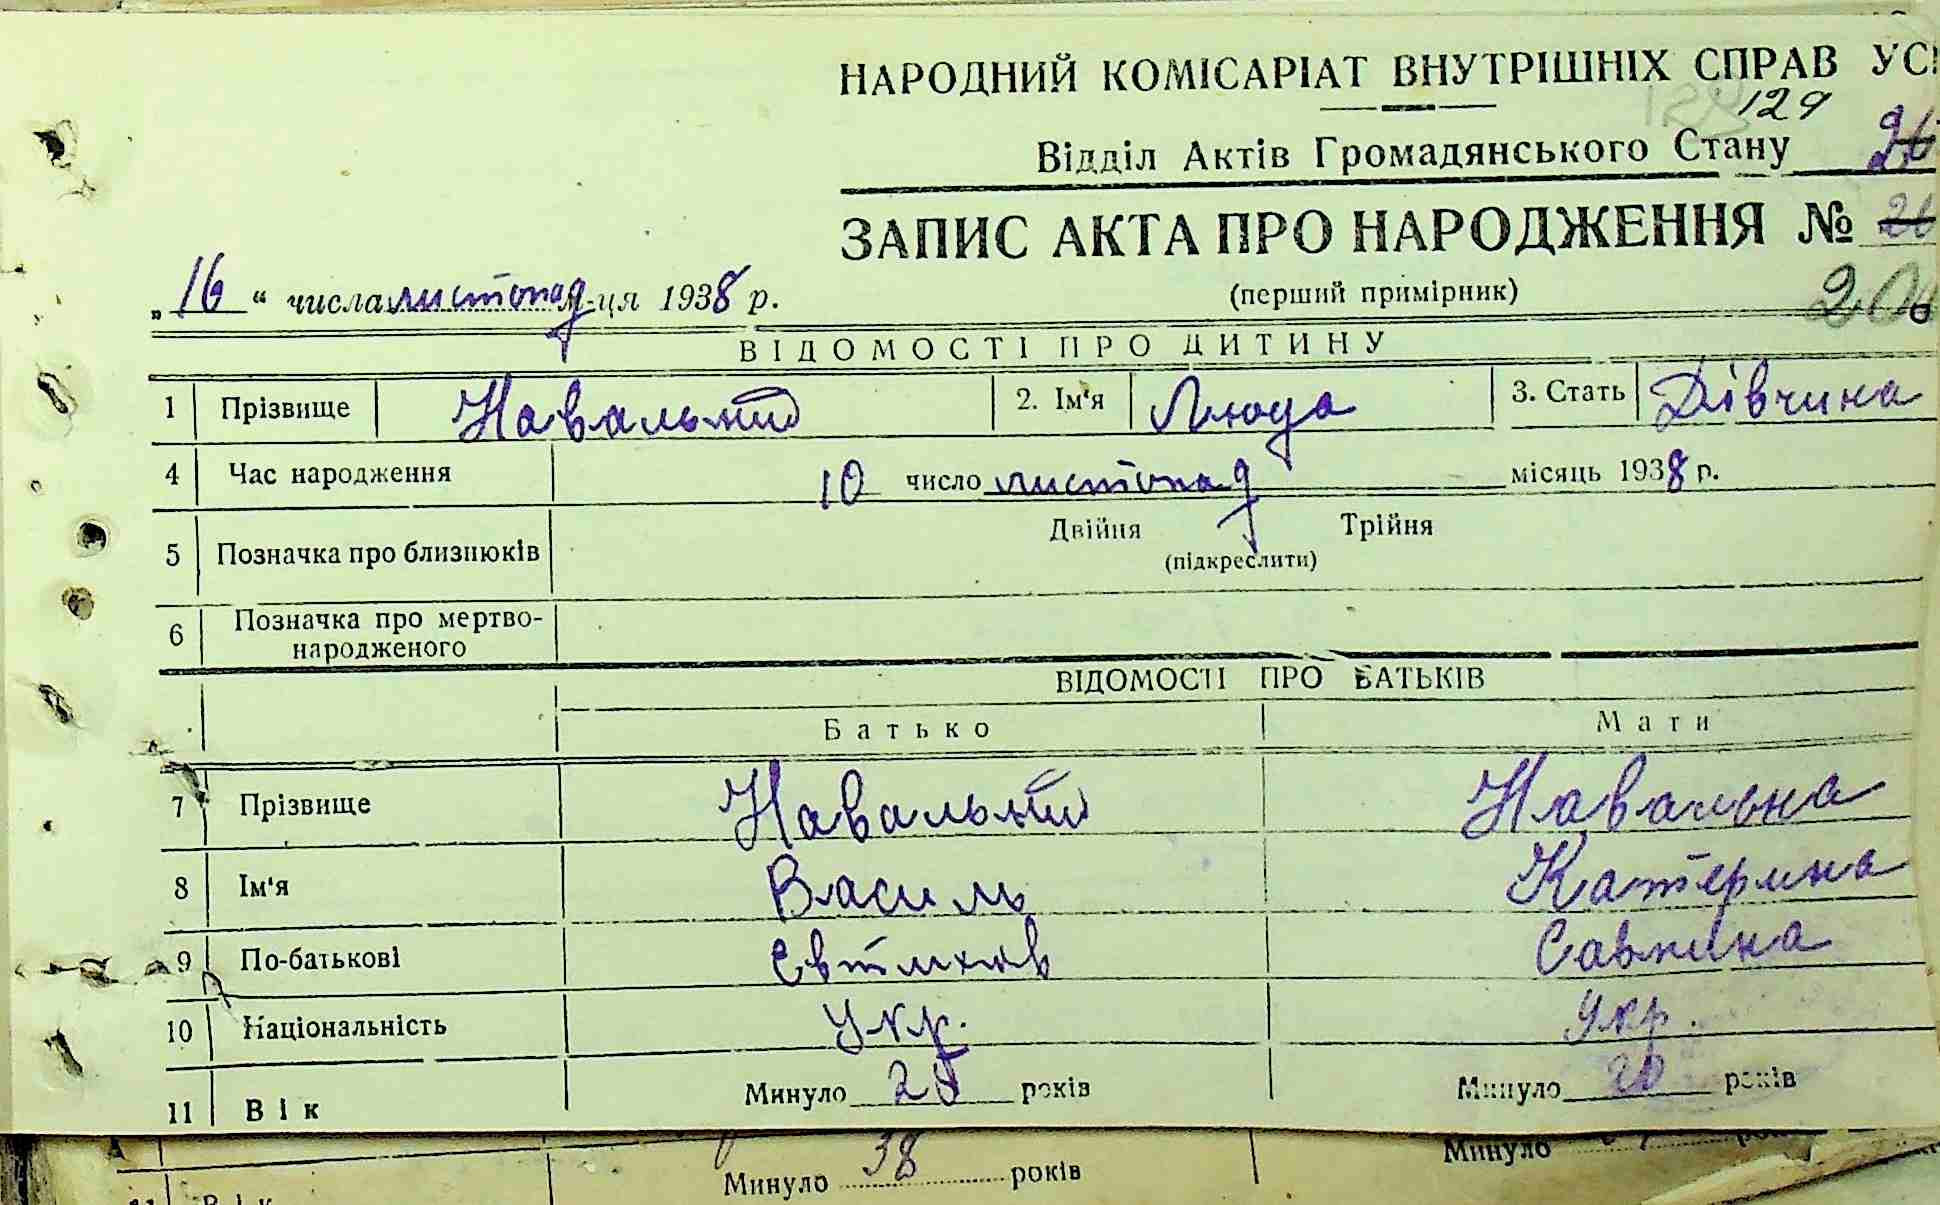 НАРОДНИЙ КОМІСАРІАТ ВНУТРІШНІХ СПРАВ
129
Відділ Актів Громадянського Стану
ЗАПИС АКТА ПРО НАРОДЖЕННЯ №
„16“ числа листопад м-ця 1938 р.
(перший примірник)
ВІДОМОСТІ ПРО ДИТИНУ
1 Прізвище Навальний 2. Ім'я Люда 3. Стать Дівчина
4 Час народження 10 число листопад місяць 1938 р.
5 Позначка про близнюків Двійня Трійня
(підкреслити)
6 Позначка про мертво-
народженого
ВІДОМОСТІ ПРО БАТЬКІВ
Батько Мати
7 Прізвище Навальний Навальна
8 Ім'я Василь Катерина
9 По-батькові Євтихов
10 Національність Укр. Укр.
11 Вік Минуло років Минуло 20 років
Минуло 38 років Минуло